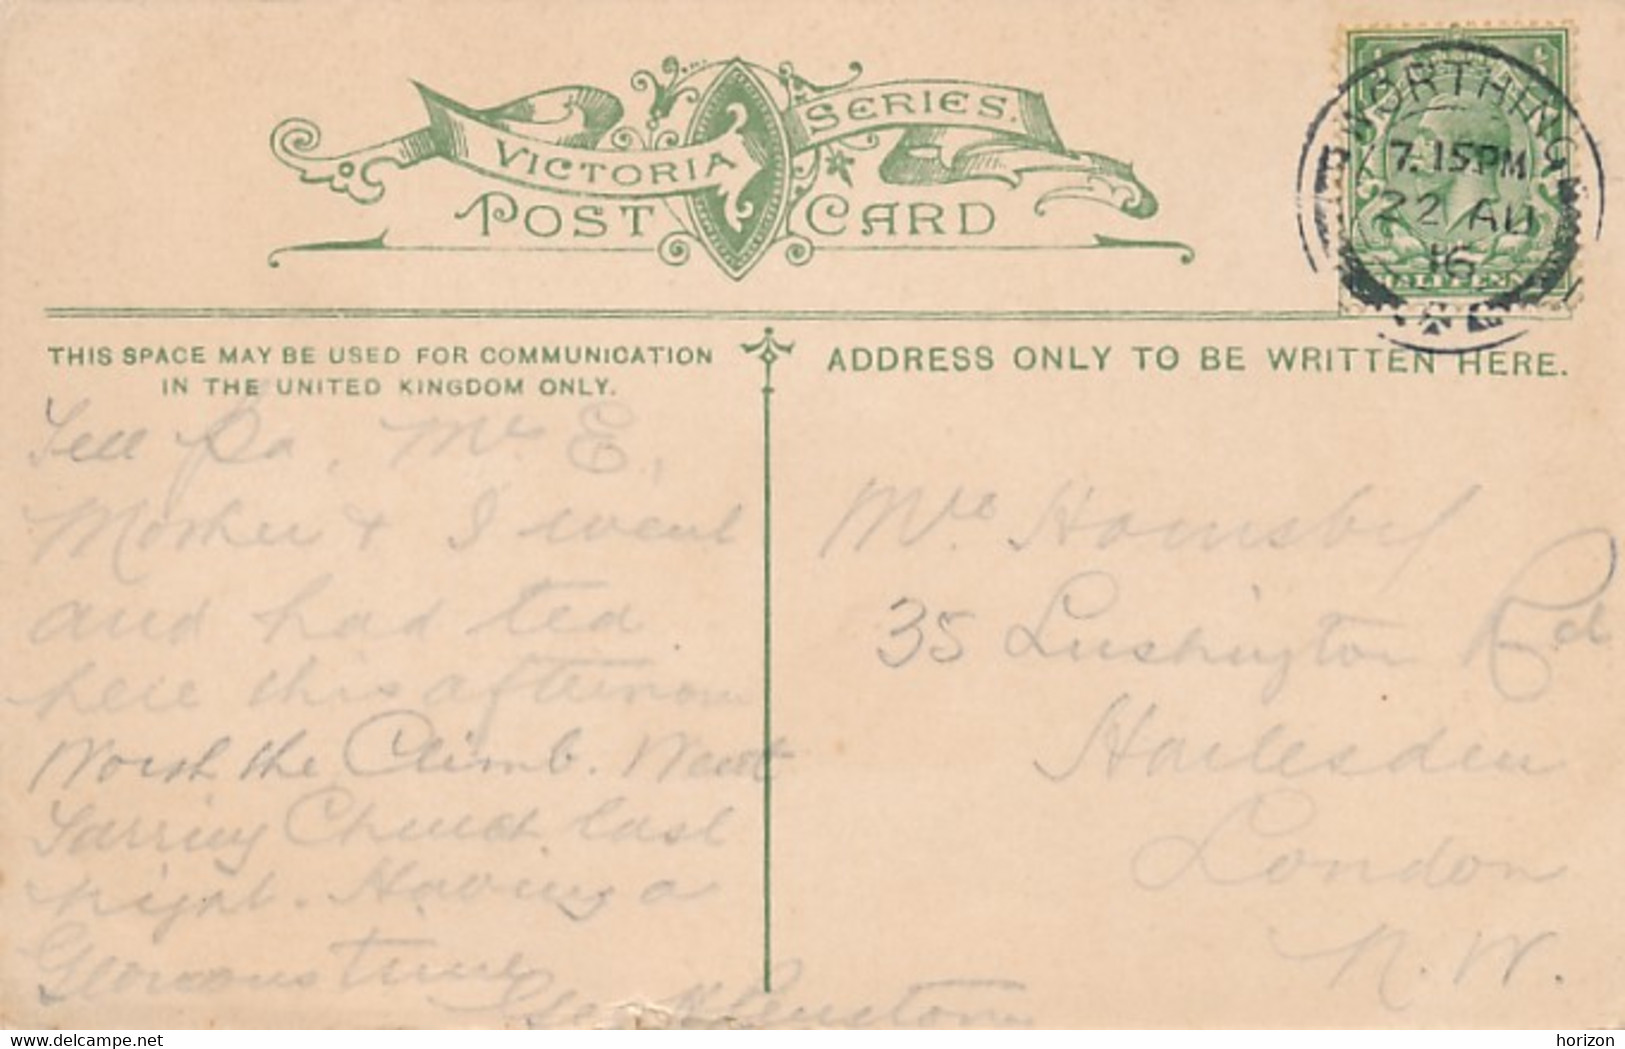 VICTORIA SERIES.
POST CARD
WORTHING
7. 15 PM
22 AU
16
HALFPENNY
THIS SPACE MAY BE USED FOR COMMUNICATION
IN THE UNITED KINGDOM ONLY.
ADDRESS ONLY TO BE WRITTEN HERE.
Tell Pa, Mr E,
Mother & I went
and had tea
here this afternoon
Worth the Climb. Went
Tarring Church last
night. Having a
Glorious time
Mrs Hornsby
35 Lushington Rd
Harlesden
London
N.W.
delcampe.net
horizon